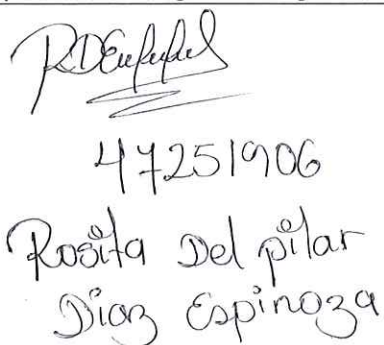 47251906
Rosita Del pilar
Diaz Espinoza